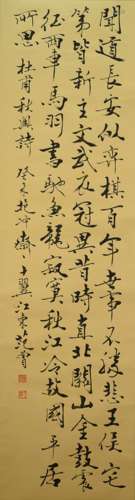 聞道長安似弈棋百年世事不勝悲王侯宅
第皆新主文武衣冠異昔時直北關山金鼓震
征西車馬羽書馳魚龍寂寞秋江冷故國平居
所思 杜甫秋興詩 癸未抱沖齋十翼江東范曾